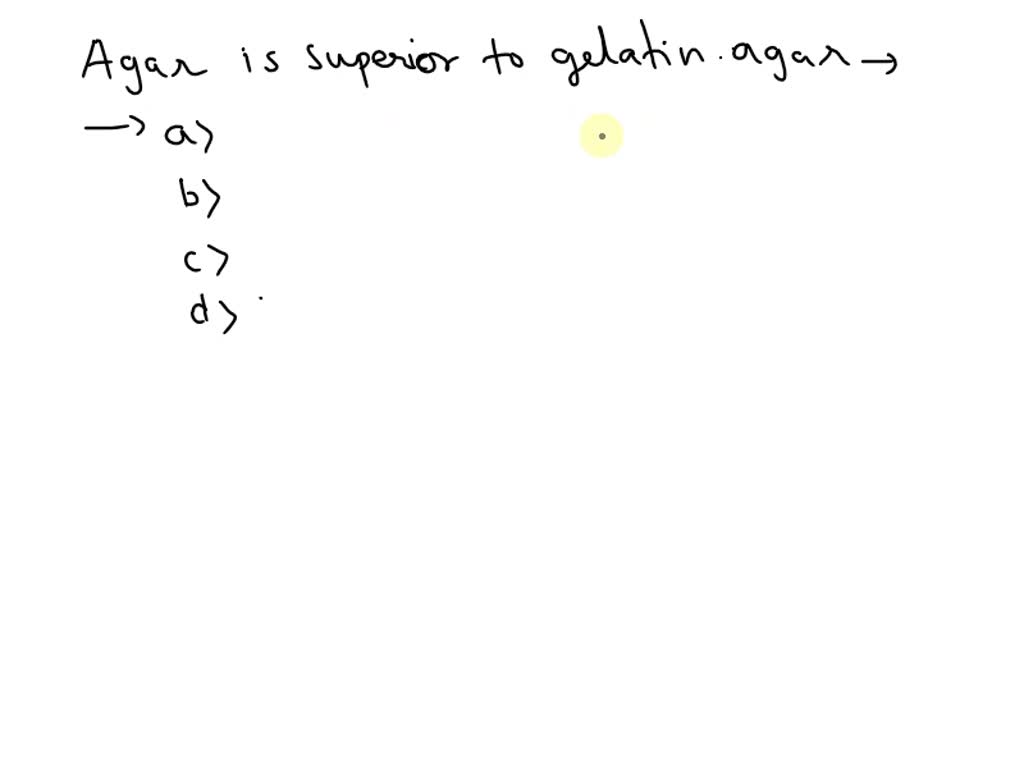 Agar is superior to gelatin. agar →
→ a>
b>
c>
d>